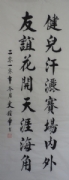 健兒汗灑賽場內外
友誼花開天涯海角
二零一零年